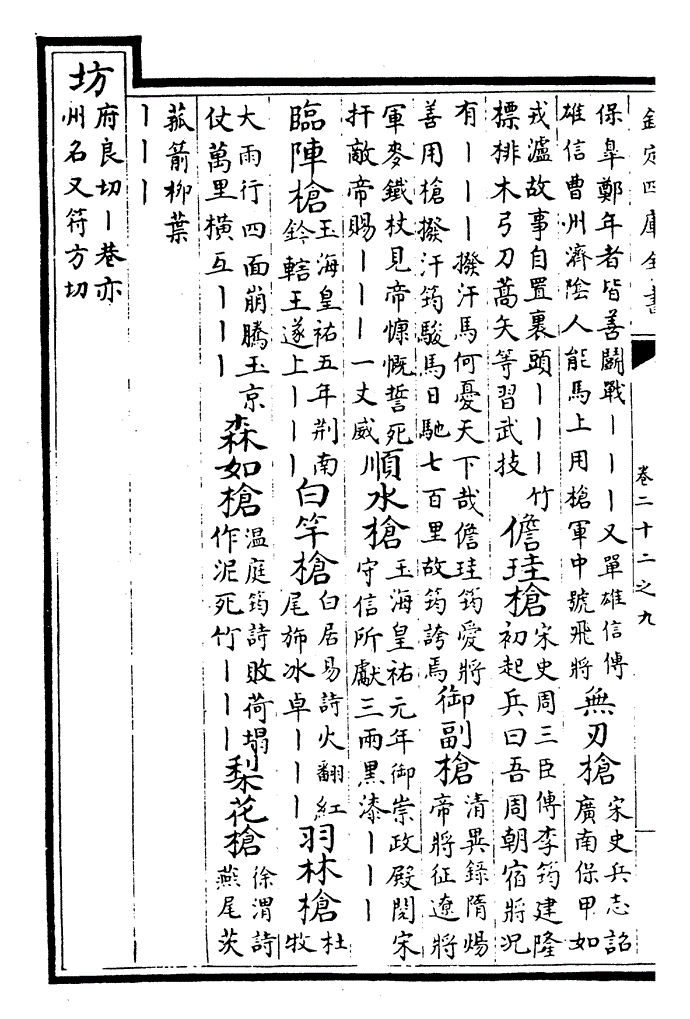 欽定四庫全書
卷二十二之九
保臯鄭年者皆善鬭戰丨丨丨又單雄信傳
雄信曹州濟陰人能馬上用槍軍中號飛將
無刃槍
宋史兵志詔
廣南保甲如
戎瀘故事自置裹頭丨丨丨竹
標排木弓刀蒿矢等習武技
儋珪槍
宋史周三臣傳李筠建隆
初起兵曰吾周朝宿將況
有丨丨丨撥汗馬何憂天下哉儋珪筠愛將
善用槍撥汗筠駿馬日馳七百里故筠誇焉
御副槍
清異錄隋煬
帝將征遼將
軍麥鐵杖見帝慷慨誓死
扞敵帝賜丨丨丨一丈威
順水槍
玉海皇祐元年御崇政殿閱宋
守信所獻三兩黑漆丨丨丨
臨陣槍
玉海皇祐五年荆南
鈐轄王遂上丨丨丨
白竿槍
白居易詩火翻紅
尾斾冰卓丨丨丨
羽林槍
杜
牧
大雨行四面崩騰玉京
仗萬里橫亙丨丨丨
森如槍
温庭筠詩敗荷塌
作泥死竹丨丨丨
梨花槍
徐渭詩
燕尾茨
菰箭柳葉
丨丨丨
坊
府良切丨巷亦
州名又符方切